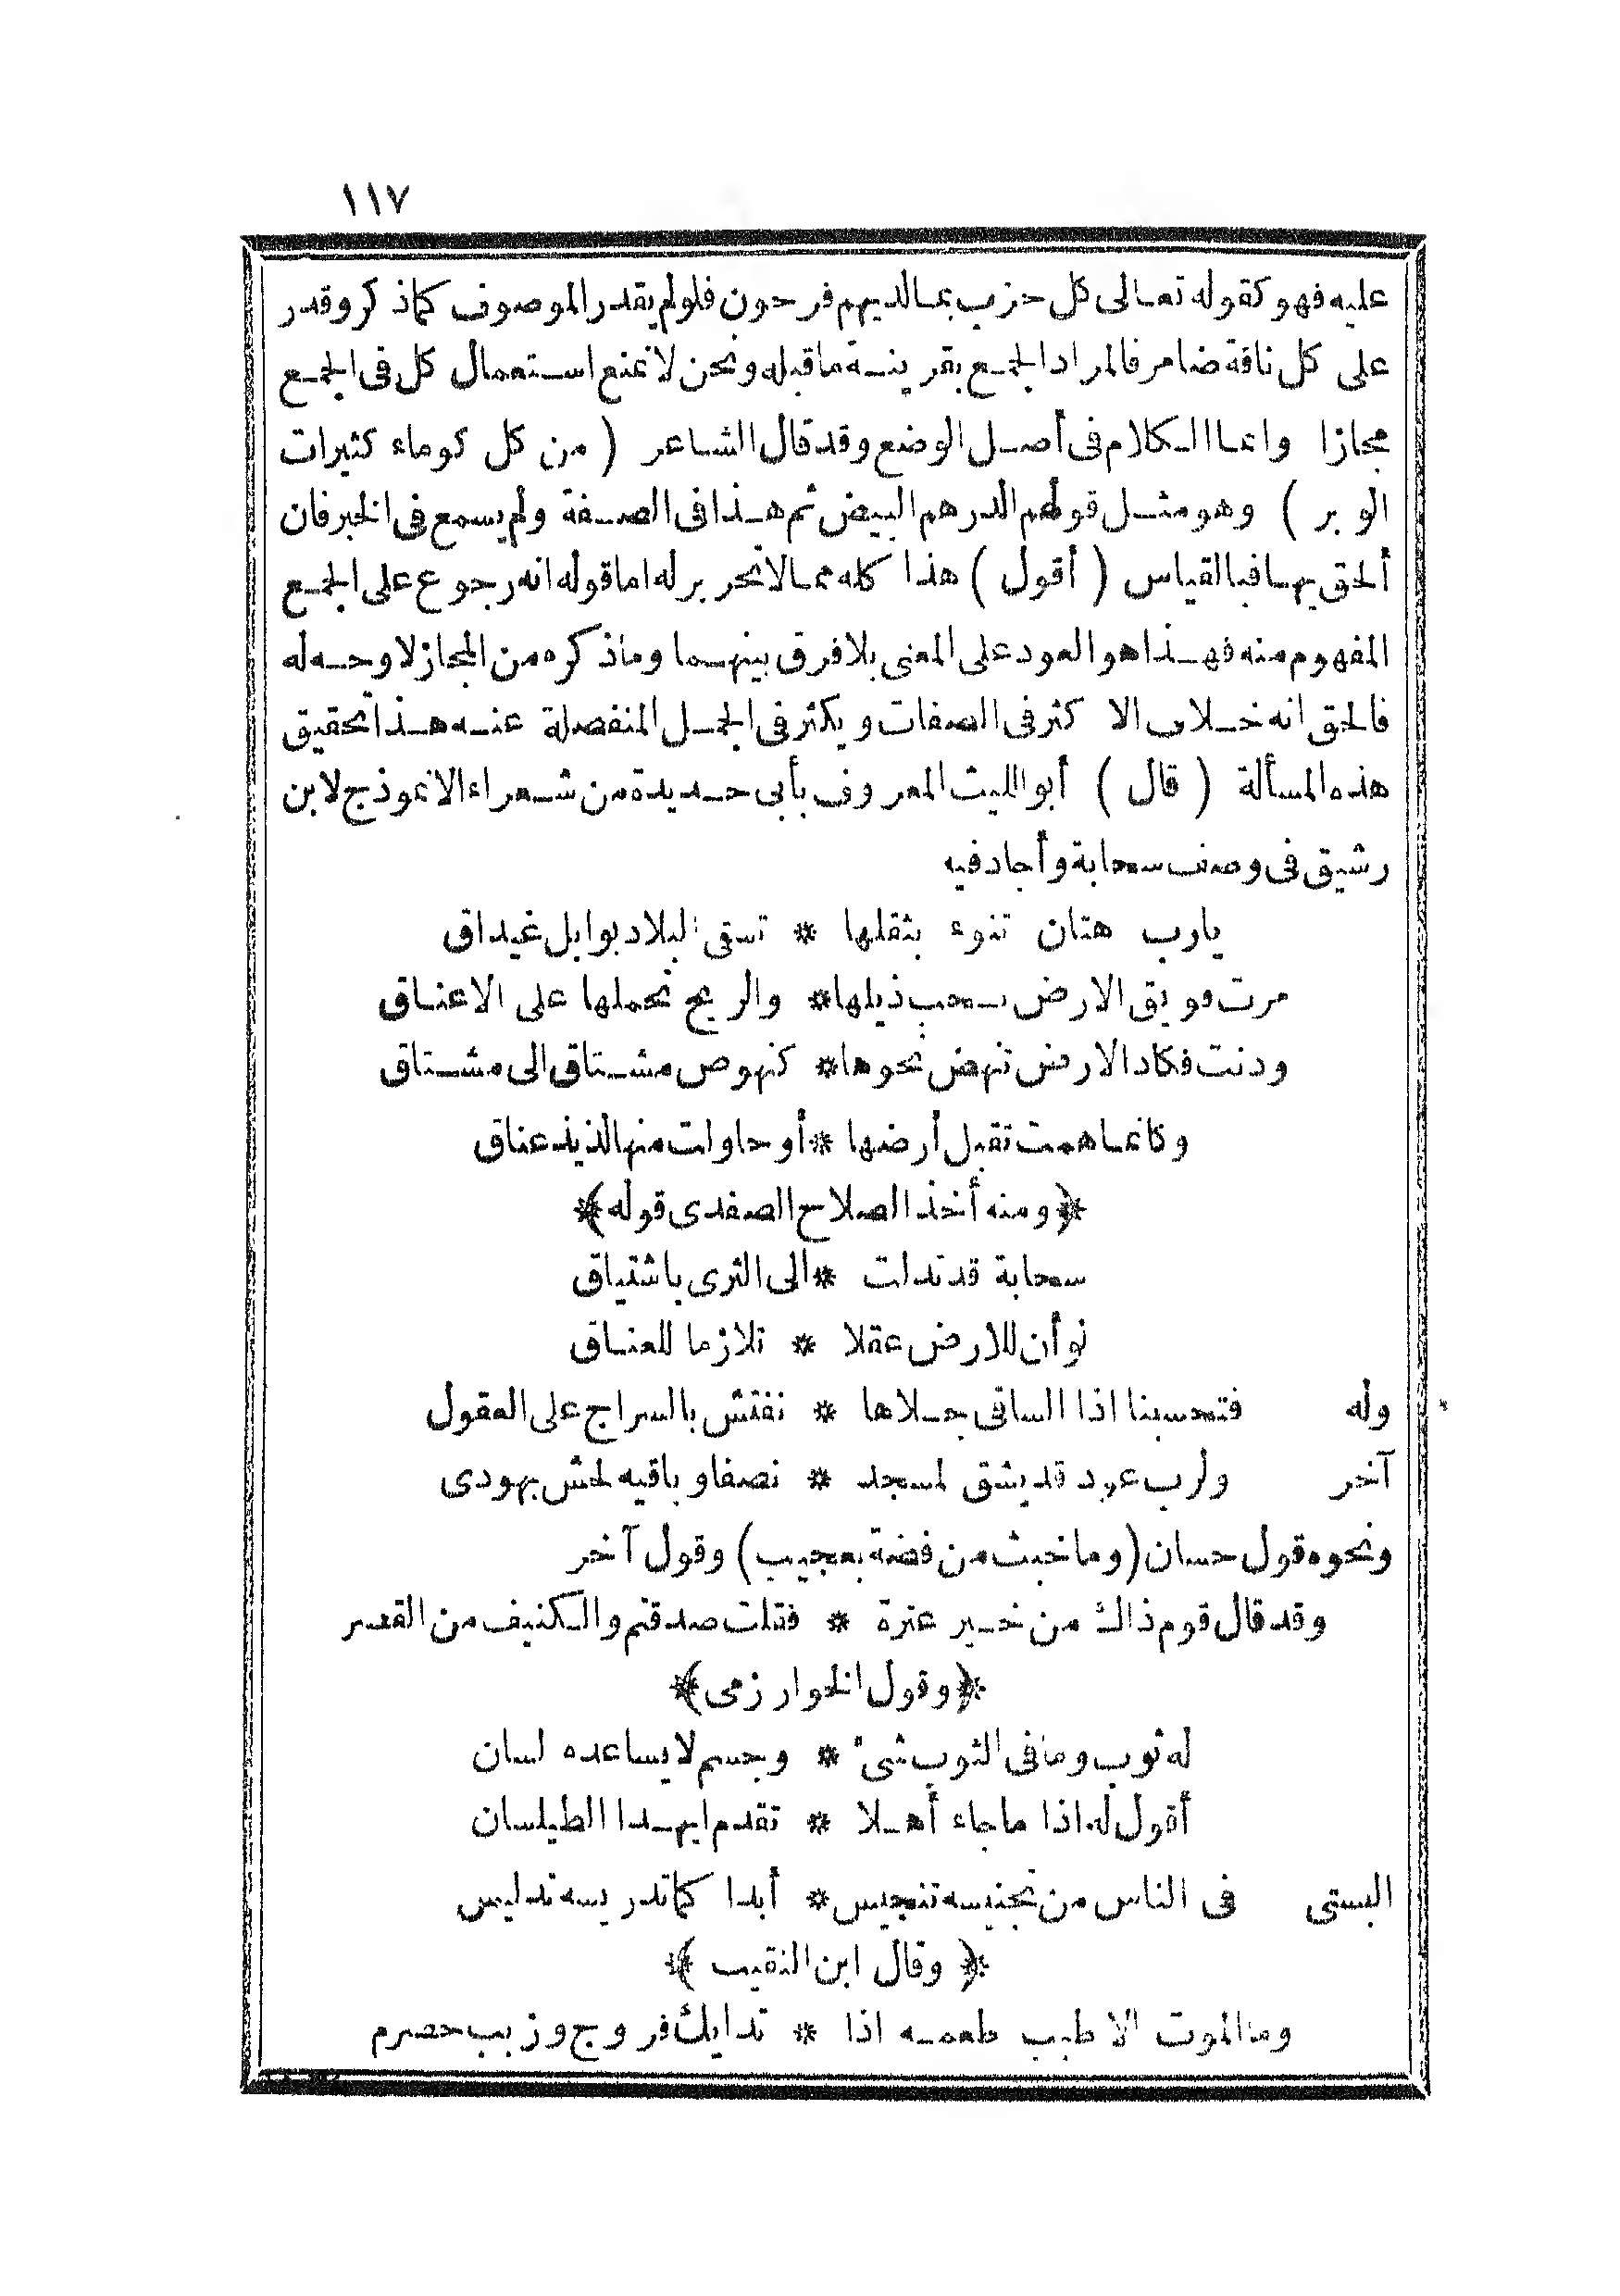 ١١٧
عليه فهو كقوله تعالى كل حزب بما لديهم فرحون فلو لم يقدر الموصوف كما ذكر وقدر
على كل ناقة ضامر فالمراد الجمع بقرينة ما قبله ونحن لا نمنع استعمال كل فى الجمع
مجازا وانما الكلام فى أصل الوضع وقد قال الشاعر ( من كل كوماء كثيرات
الوبر ) وهو مثل قولهم الدرهم البيض ثم هذا فى الصفة ولم يسمع فى الخبر فان
ألحق بها فبالقياس ( أقول ) هذا كله مما لا تحرير له اما قوله انه رجوع على الجمع
المفهوم منه فهذا هو العود على المعنى بلا فرق بينهما وما ذكره من المجاز لا وجه له
فالحق انه خلاف الاكثر فى الصفات ويكثر فى الجمل المنفصلة عنه هذا تحقيق
هذه المسألة ( قال ) أبو الليث المعروف بأبى حديدة من شعراء الانموذج لابن
رشيق فى وصف سحابة وأجاد فيه
يارب هتان تنوء بثقلها * تسقى البلاد بوابل غيداق
مرت فويق الارض تسحب ذيلها * والريح تحملها على الاعناق
ودنت فكاد الارض تنهض نحوها * كنهوض مشتاق الى مشتاق
وكأنما همت تقبل أرضها * أو حاولت منها لذيذ عناق
﴿ ومنه أخذ الصلاح الصفدى قوله ﴾
سحابة قد تدلت * الى الثرى باشتياق
لو أن للارض عقلا * تلازما للعناق
وله فتحسبنا اذا الساقى جلاها * نفتش بالسراج على العقول
آخر ولرب عود قد يشق لمسجد * نصفا وباقيه لحش يهودى
ونحوه قول حسان ( وما خبث من فضة بعجيب ) وقول آخر
وقد قال قوم ذاك من خير عترة * فقلت صدقتم والكنيف من القصر
﴿ وقول الخوارزمى ﴾
له ثوب وما فى الثوب شئ * وجسم لا يساعده لسان
أقول له اذا ما جاء أهلا * تقدم ايهذا الطيلسان
البستى فى الناس من تجنيسه تنجيس * أبدا كما تدريسه تدليس
﴿ وقال ابن النقيب ﴾
وما الموت الا طيب طعمه اذا * تدايك فروج وزبب حصرم